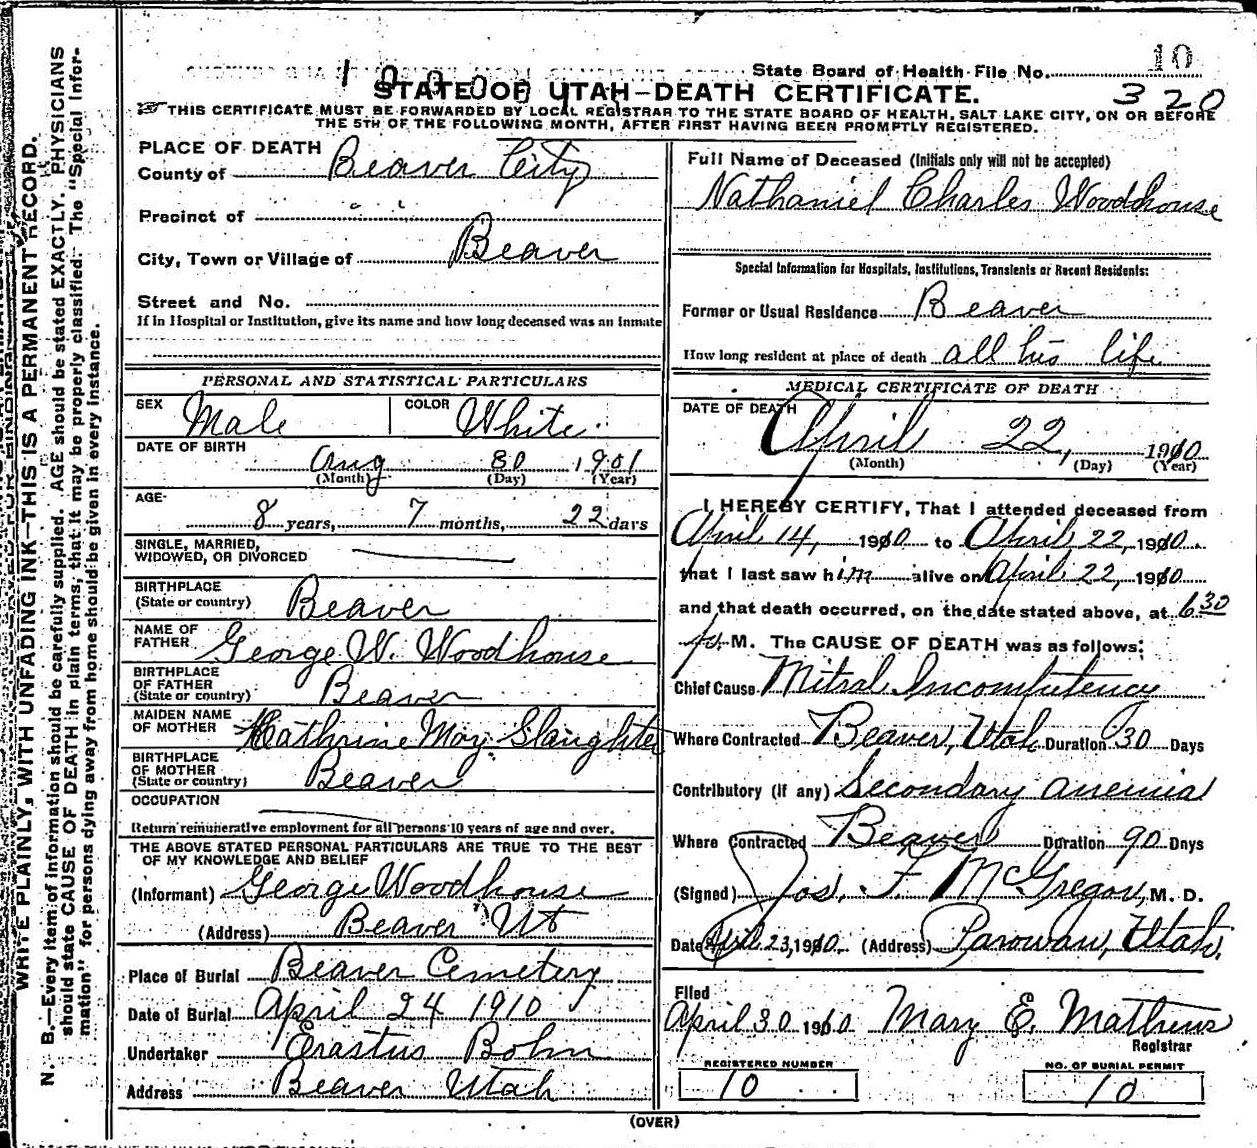 WRITE PLAINLY, WITH UNFADING INK—THIS IS A PERMANENT RECORD.
N. B.—Every item of information should be carefully supplied. AGE should be stated EXACTLY. PHYSICIANS
should state CAUSE OF DEATH in plain terms, that it may be properly classified. The "Special Infor-
mation" for persons dying away from home should be given in every instance.
State Board of Health File No. 10
STATE OF UTAH—DEATH CERTIFICATE. 320
THIS CERTIFICATE MUST BE FORWARDED BY LOCAL REGISTRAR TO THE STATE BOARD OF HEALTH, SALT LAKE CITY, ON OR BEFORE
THE 5TH OF THE FOLLOWING MONTH, AFTER FIRST HAVING BEEN PROMPTLY REGISTERED.
PLACE OF DEATH
County of Beaver City
Precinct of " "
City, Town or Village of Beaver
Street and No.
If in Hospital or Institution, give its name and how long deceased was an inmate
PERSONAL AND STATISTICAL PARTICULARS
SEX Male COLOR White
DATE OF BIRTH
Aug 30 1901
(Month) (Day) (Year)
AGE
8 years, 7 months, 22 days
SINGLE, MARRIED,
WIDOWED, OR DIVORCED
BIRTHPLACE
(State or country) Beaver
NAME OF
FATHER George W. Woodhouse
BIRTHPLACE
OF FATHER
(State or country) Beaver
MAIDEN NAME
OF MOTHER Kathrine May Slaughter
BIRTHPLACE
OF MOTHER
(State or country) Beaver
OCCUPATION
Return remunerative employment for all persons 10 years of age and over.
THE ABOVE STATED PERSONAL PARTICULARS ARE TRUE TO THE BEST
OF MY KNOWLEDGE AND BELIEF
(Informant) George Woodhouse
(Address) Beaver Ut
Place of Burial Beaver Cemetery
Date of Burial April 24 1910
Undertaker Erastus Bohn
Address Beaver Utah
Full Name of Deceased (Initials only will not be accepted)
Nathaniel Charles Woodhouse
Special Information for Hospitals, Institutions, Transients or Recent Residents:
Former or Usual Residence Beaver
How long resident at place of death all his life
MEDICAL CERTIFICATE OF DEATH
DATE OF DEATH
April 22, 1910
(Month) (Day) (Year)
I HEREBY CERTIFY, That I attended deceased from
April 14, 1910 to April 22, 1910
that I last saw him alive on April 22, 1910
and that death occurred, on the date stated above, at 6 30
p. M. The CAUSE OF DEATH was as follows:
Chief Cause Mitral Incompetency
Where Contracted Beaver, Utah Duration 30 Days
Contributory (if any) Secondary anemia
Where Contracted Beaver Duration 90 Days
(Signed) Jos. F. McGregor, M. D.
Date April 23, 1910 (Address) Parowan, Utah.
Filed
April 30 1910 Mary E. Mathews
Registrar
REGISTERED NUMBER
10
NO. OF BURIAL PERMIT
10
(OVER)